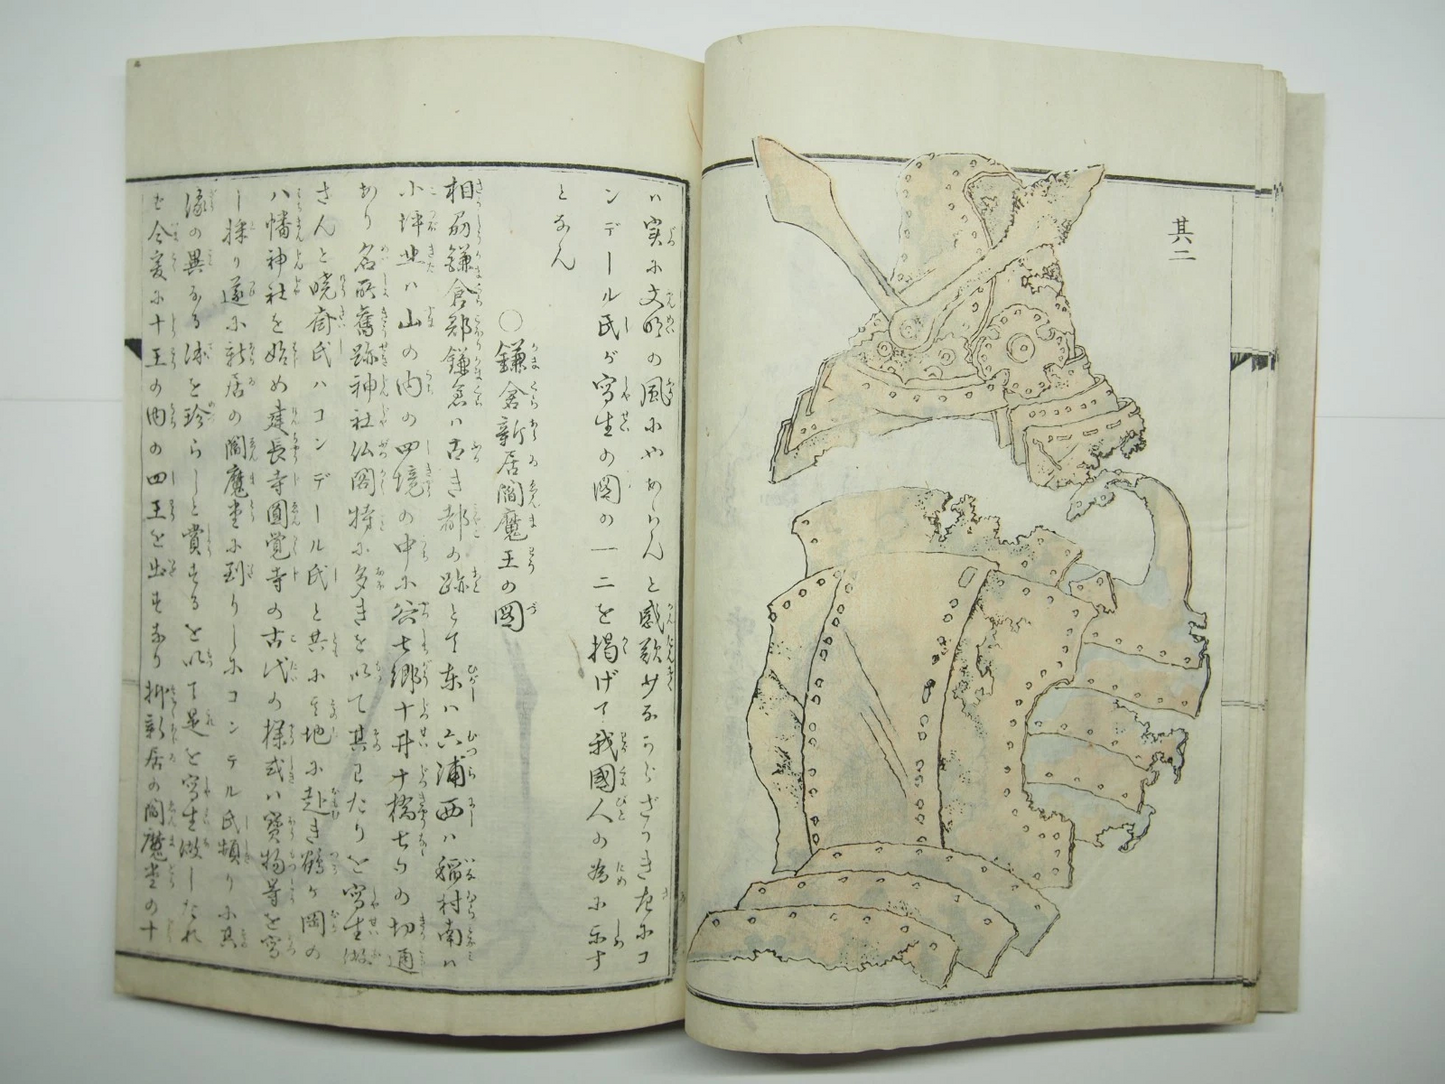 其二
ハ実に文明の風にやあらんと感歎せるうらがき左にコ
ンデール氏が写生の図の一二を掲げて我國人の為に示す
となん
○鎌倉新居閻魔王の図
相刕鎌倉郡鎌倉ハ古き都の跡とて東ハ六浦西ハ稲村南ハ
小坪北ハ山の内の四境の中に谷七郷十井十橋七ツの切通
あり名所舊跡神社仏閣特に多きを以て其わたりを写生做
さんと暁斎氏ハコンデール氏と共に彼地に赴き鶴ヶ岡の
八幡神社を始め建長寺圓覚寺の古代の様式ハ寳物等を写
し採り遂に新居の閻魔堂に到りしにコンデル氏頻りに其
像の異なる体を珍らしと賞するを以て是を写生做したれ
を今爰に十王の内の四王を出すなり抑新居の閻魔堂の十